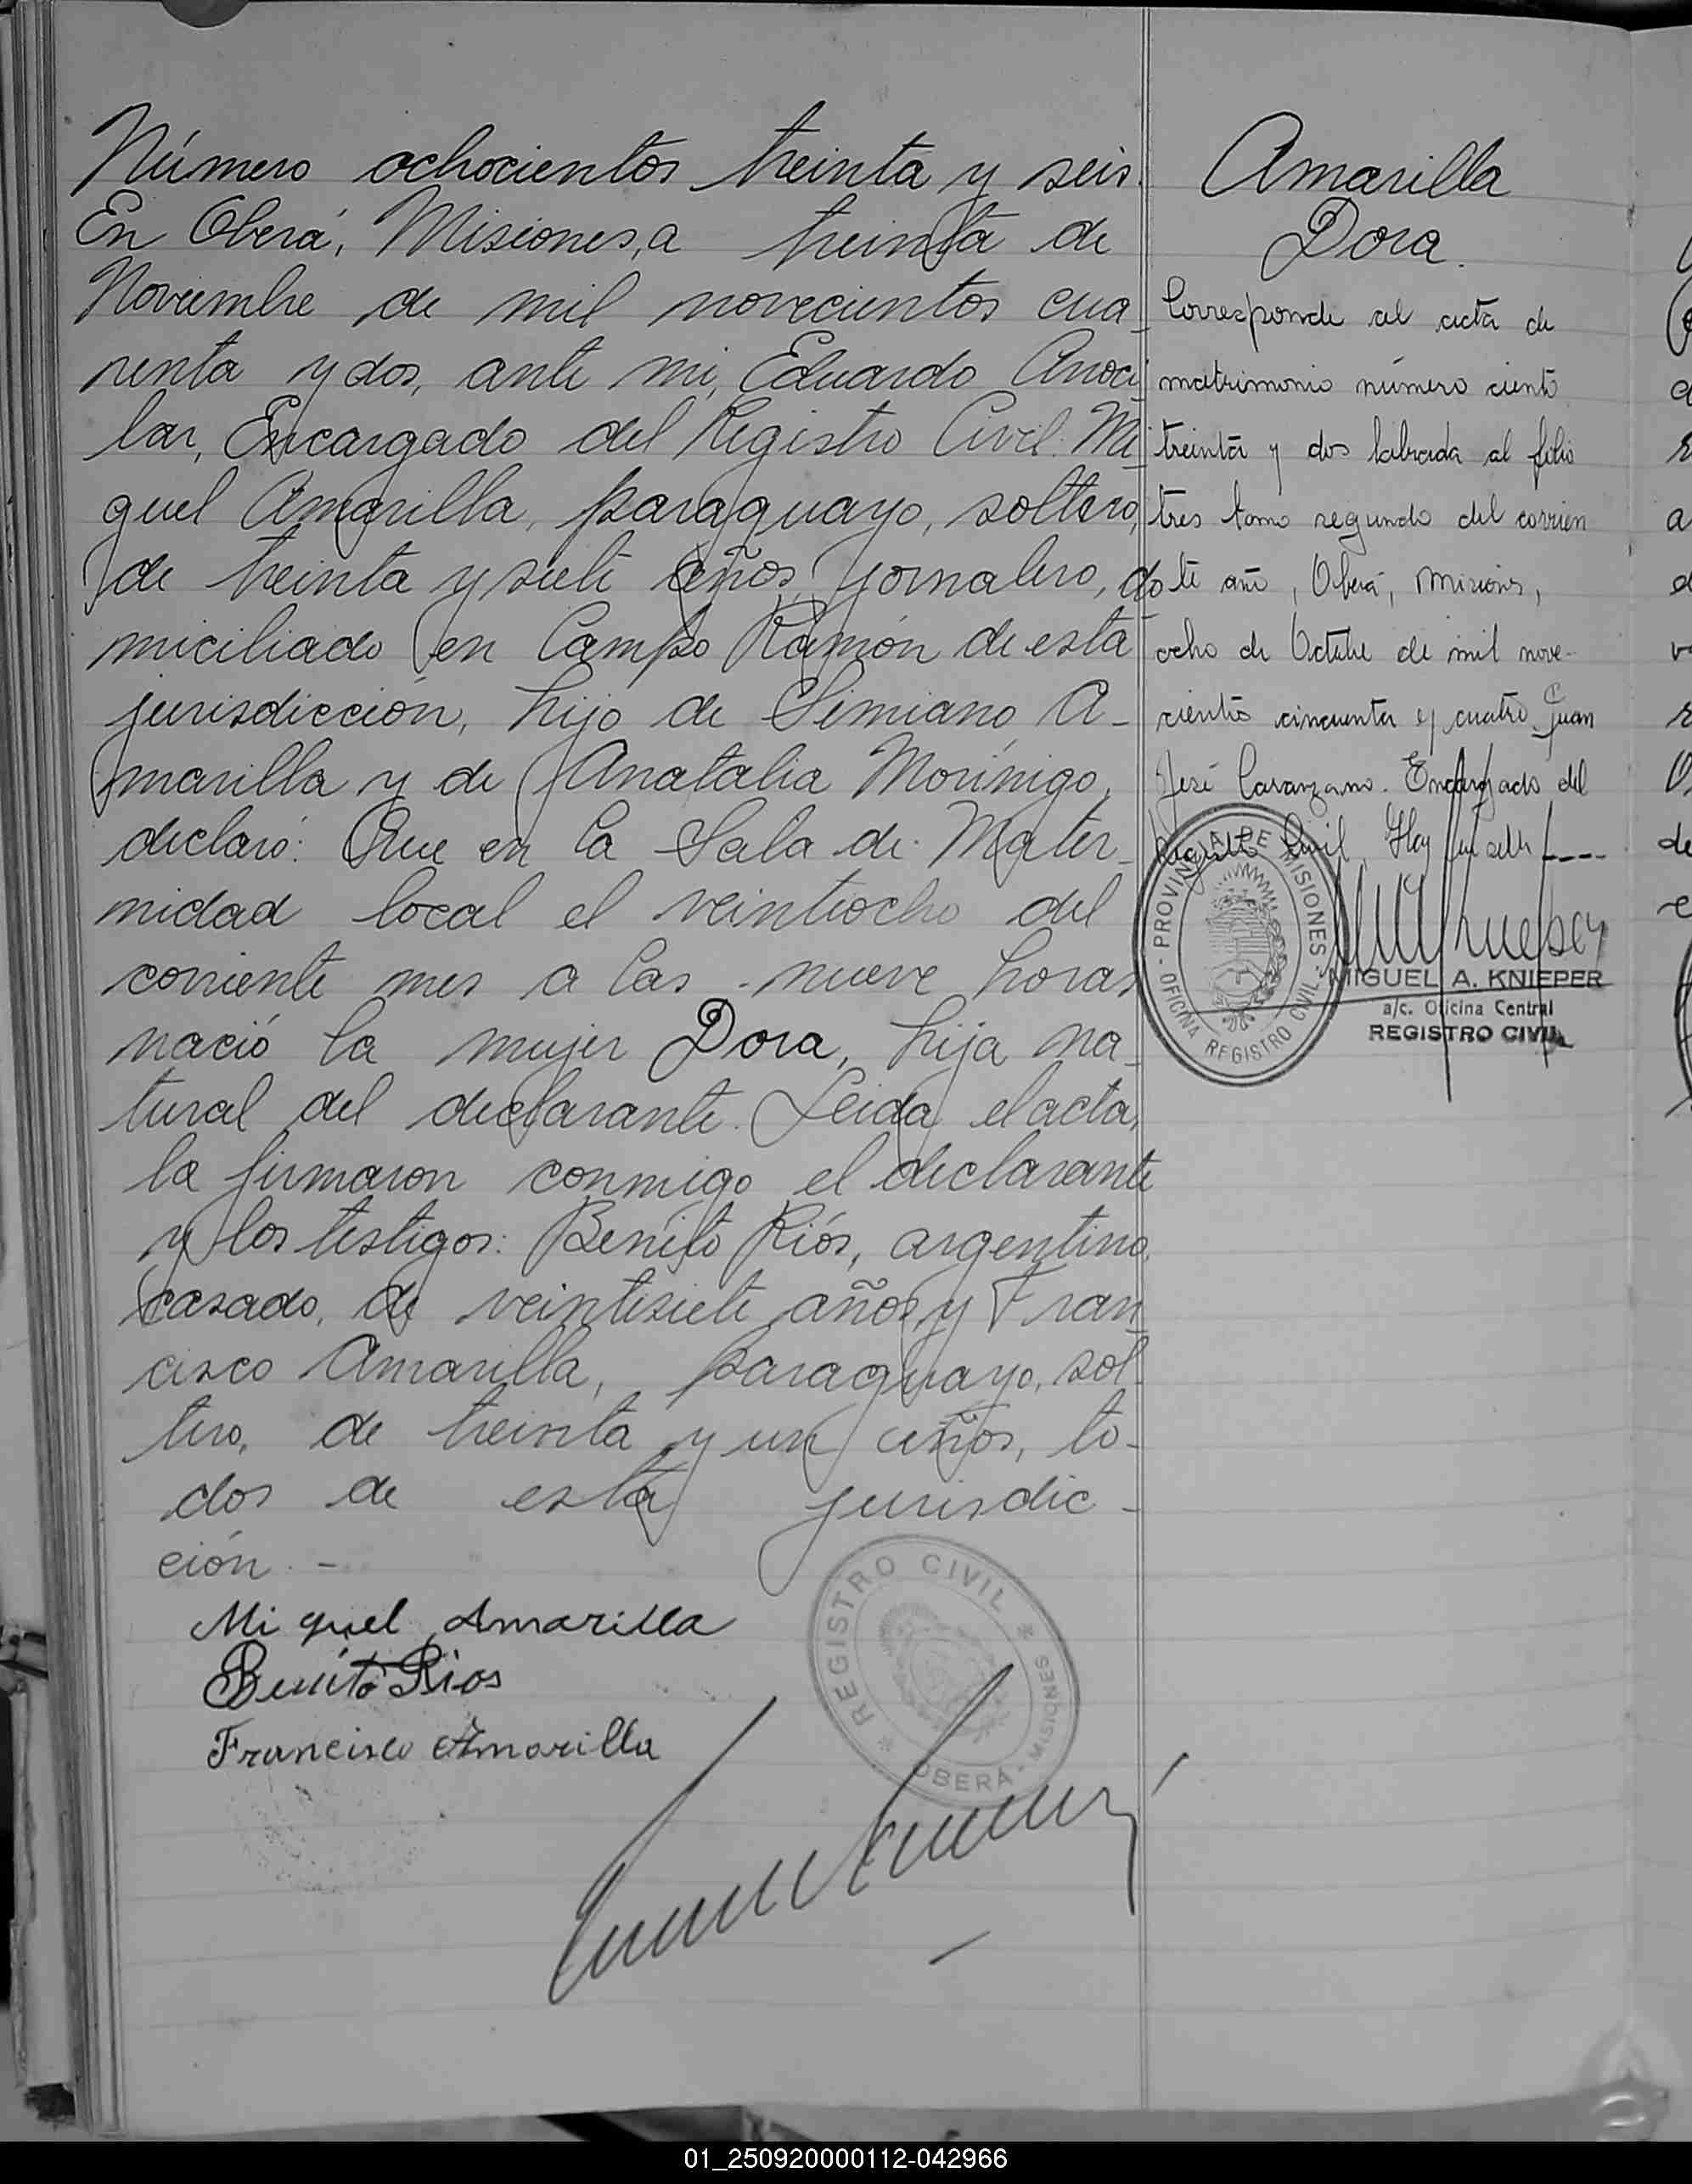 Número ochocientos treinta y seis.
En Oberá, Misiones, a treinta de
Noviembre de mil novecientos cua-
renta y dos, ante mi, Eduardo
lar, Encargado del Registro Civil: Mi-
guel Amarilla, paraguayo, soltero,
de treinta y siete años, jornalero, do
miciliado en Campo Ramón de esta
jurisdicción, hijo de Simiano A-
marilla y de Anatalia Morínigo,
declaró: Que en la Sala de Mater-
nidad local el veintiocho del
corriente mes a las nueve horas
nació la mujer Dora, hija na-
tural del declarante. Leida el acta,
la firmaron conmigo el declarante
y los testigos: Benito Ríos, argentino,
casado, de veintisiete años, y Fran-
cisco Amarilla, paraguayo, sol-
tero, de treinta y un años, to-
dos de esta jurisdic-
ción. -
Miguel Amarilla
Benito Rios
Francisco Amarilla
REGISTRO CIVIL
OBERÁ - MISIONES
Amarilla
Dora.
Corresponde al acta de
matrimonio número ciento
treinta y dos labrada al folio
tres tomo segundo del corrien
te año, Oberá, Misiones,
ocho de Octubre de mil nove-
cientos cincuenta y cuatro. Juan
José Encargado del
Registro Civil. Hay un sello ----
PROVINCIA DE MISIONES
OFICINA REGISTRO CIVIL
MIGUEL A. KNIEPER
a/c. Oficina Central
REGISTRO CIVIL
01_250920000112-042966